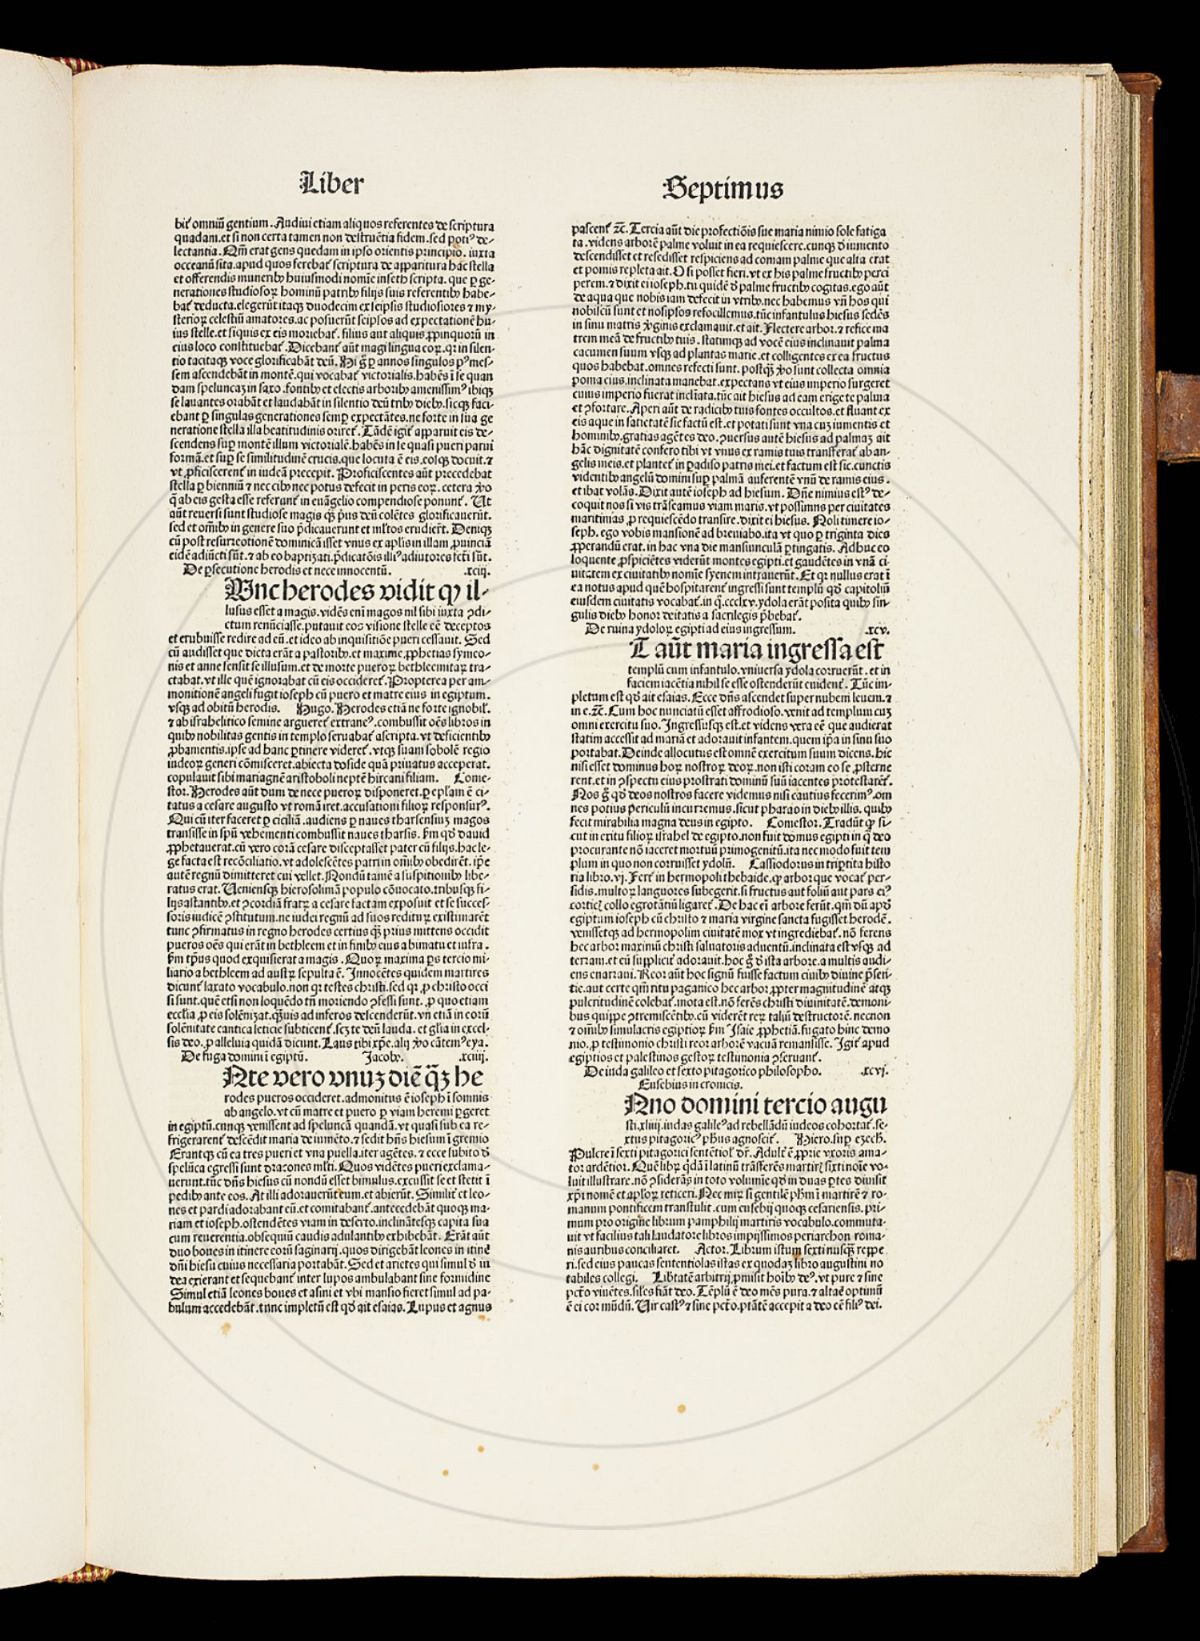 Liber
bit᷑ omniū gentium. Audiui etiam aliquos referentes de scriptura
quadam. et si non certa tamen non destruētia fidem. sed poti᷒ de-
lectantia. Qm̄ erat gens quedam in ipso orientis principio. iuxta
occeanū sita. apud quos ferebat᷑ scriptura de apparitura hac stella
et offerendis munerib᷒ huiusmodi nomīe inseth scripta. que p̱ ge-
nerationes studiosoꝝ hominū patrib᷒ filijs suis referentib᷒ habe-
bat᷑ deducta. elegerūt itaqꝫ duodecim ex seipsis studiosiores ⁊ my-
sterioꝝ celestiū amatores. ac posuerūt seipsos ad expectationē hu-
ius stelle. et siquis ex eis moriebat᷑. filius aut aliquis ꝓpinquorū in
eius loco constituebat᷑. Dicebant᷑ aūt magi lingua eoꝝ. qꝛ in silen-
tio tacitaqꝫ voce glorificabāt deū. Hi g̊ p̱ annos singulos p᷒ mes-
sem ascendebāt in montē. qui vocabat᷑ victorialis. habēs ī se quan
dam speluncaꝫ in saxo. fontib᷒ et electis arborib᷒ amenissim᷒ ibiqꝫ
se lauantes orabāt et laudabāt in silentio deū trib᷒ dieb᷒. sicqꝫ faci-
ebant p̱ singulas generationes semp̱ expectātes. ne forte in sua ge
neratione stella illa beatitudinis oriret᷑. Tādē igit᷑ apparuit eis de-
scendens sup̱ montē illum victorialē. habēs in se quasi pueri parui
formā. et sup̱ se similitudinē crucis. que locuta ē eis. eosqꝫ docuit. ⁊
vt ꝓficiscerent᷑ in iudeā precepit. Proficiscentes aūt precedebat
stella p̱ bienniū ⁊ nec cib᷒ nec potus defecit in peris eoꝝ. cetera ꝟo
q̄ ab eis gesta esse referunt᷑ in euāgelio compendiose ponunt᷑. Ut
aūt reuersi sunt studiose magis qꝫ p̄us deū colētes glorificauerūt.
sed et omīb᷒ in genere suo p̄dicauerunt et ml̄tos erudierūt. Deniqꝫ
cū post resurrectionē dominicā isset vnus ex apl̄is in illam ꝓuinciā
eidē adiūcti sūt. ⁊ ab eo baptizati. p̄dicatōis illi᷒ adiutores fc̄ti sūt.
De p̱secutione herodis et nece innocentū. .xciij.
Unc herodes vidit ꝙ il-
lusus esset a magis. vidēs em̄ magos nil sibi iuxta ꝯdi-
ctum renūciasse. putauit eos visione stelle eē deceptos
et erubuisse redire ad eū. et ideo ab inquisitiōe pueri cessauit. Sed
cū audisset que dicta erāt a pastorib᷒. et maxime ꝓphetias symeo-
nis et anne sensit se illusum. et de morte pueroꝝ bethleemitaꝝ tra-
ctabat. vt ille quē ignorabat cū eis occideret᷑. Propterea per am-
monitionē angeli fugit ioseph cū puero et matre eius in egiptum.
vsqꝫ ad obitū herodis. Hugo. Herodes etiā ne forte ignobil᷑.
⁊ ab israhelitico semine argueret᷑ extrane᷒. combussit oēs libros in
quib᷒ nobilitas gentis in templo seruabat᷑ ascripta. vt deficientib᷒
ꝓbamentis. ipse ad hanc p̱tinere videret᷑. vtqꝫ suam sobolē regio
iudeoꝝ generi cōmisceret. abiecta doside quā priuatus acceperat.
copulauit sibi mariagnē aristoboli neptē hircani filiam. Come-
stor. Herodes aūt dum de nece pueroꝝ disponeret. p̱ ep̄lam ē ci-
tatus a cesare augusto vt romā iret. accusationi filioꝝ responsur᷒.
Qui cū iter faceret p̱ ciciliā. audiens p̱ naues tharsensiuꝫ magos
transisse in spū vehementi combussit naues tharsis. ẜm qd̄ dauid
ꝓphetauerat. cū vero corā cesare disceptasset pater cū filijs. hac le-
ge facta est recōciliatio. vt adolescētes patri in omīb᷒ obedirēt. ip̄e
autē regnū dimitteret cui vellet. Nondū tamē a suspitionib᷒ libe-
ratus erat. Ueniensqꝫ hierosolimā populo cōuocato. tribusqꝫ fi-
lijs astantib᷒. et ꝯcordiā fratꝝ a cesare factam exposuit et se succes-
soris iudicē ꝯstitutum. ne iudei regnū ad suos rediturꝫ existimarēt
tunc ꝯfirmatus in regno herodes certius qꝫ prius mittens occidit
pueros oēs qui erāt in bethleem et in finib᷒ eius a bimatu et infra.
ẜm tp̄us quod exquisierat a magis. Quoꝝ maxima ps tercio mi-
liario a bethleem ad austꝝ sepulta ē. Innocētes quidem martires
dicunt᷑ laxato vocabulo. non qꝛ testes christi. sed qꝛ ꝓ christo occi
si sunt. quē etsi non loquēdo tn̄ moriendo ꝯfessi sunt. ꝓ quo etiam
ecclīa ꝓ eis solēnizat. qꝫuis ad inferos descenderūt. vn̄ etiā in eorū
solēnitate cantica leticie subticent᷑. scꝫ te deū lauda. et glīa in excel-
sis deo. ꝓ alleluia quidā dicunt. Laus tibi xp̄e. alij ꝟo cātem᷒ eya.
De fuga domini ī egiptū. Jacob᷒. .xciiij.
Nte vero vnuꝫ diē qꝫ he
rodes pueros occideret. admonitus ē ioseph ī somnis
ab angelo. vt cū matre et puero p̱ viam heremi p̱geret
in egiptū. cunqꝫ venissent ad speluncā quandā. vt quasi sub ea re-
frigerarent᷑ descēdit maria de iumēto. ⁊ sedit hn̄s hiesum ī gremio
Erantqꝫ cū ea tres pueri et vna puella. iter agētes. ⁊ ecce subito d̄
spelūca egressi sunt dracones ml̄ti. Quos vidētes pueri exclama-
uerunt. tūc dn̄s hiesus cū nondū esset bimulus. excussit se et stetit ī
pedib᷒ ante eos. At illi adorauerūt eum. et abierūt. Similit᷑ et leo-
nes et pardi adorabant eū. et comitabant᷑. antecedebāt quoqꝫ ma-
riam et ioseph. ostendētes viam in deserto. inclinātesqꝫ capita sua
cum reuerentia. obsequiū caudis adulantib᷒ exhibebāt. Erāt aūt
duo boues in itinere eorū saginarij. quos dirigebāt leones in itinē
dn̄i hiesu cuius necessaria portabāt. Sed et arietes qui simul d̄ in
dea exierant et sequebant᷑ inter lupos ambulabant sine formidine
Simul etiā leones boues et asini et vbi mansio fieret simul ad pa-
bulum accedebāt. tunc impletū est qd̄ ait esaias. Lupus et agnus
Septimus
pascent᷑ ⁊c̄. Tercia aūt die profectiōis sue maria nimio sole fatiga
ta. videns arborē palme voluit in ea requiescere. cunqꝫ d̄ iumento
descendisset et resedisset respiciens ad comam palme que alta erat
et pomis repleta ait. O si posset fieri. vt ex his palme fructib᷒ perci
perem. ⁊ dixit ei ioseph. tu quidē d̄ palme fructib᷒ cogitas. ego aūt
de aqua que nobis iam defecit in vtrib᷒. nec habemus vn̄ hos qui
nobiscū sunt et nosipsos refocillemus. tūc infantulus hiesus sedēs
in sinu matris ꝟginis exclamauit. et ait. Flectere arbor. ⁊ refice ma
trem meā de fructib᷒ tuis. statimqꝫ ad vocē eius inclinauit palma
cacumen suum vsqꝫ ad plantas marie. et colligentes ex ea fructus
quos habebat. omnes refecti sunt. postqꝫ ꝟo sunt collecta omnia
poma eius. inclinata manebat. expectans vt eius imperio surgeret
cuius imperio fuerat inclīata. tūc ait hiesus ad eam erige te palma
et ꝯfortare. Aperi aūt de radicib᷒ tuis fontes occultos. et fluant ex
eis aque in satietatē sic factū est. et potati sunt vna cuꝫ iumentis et
hominib᷒. gratias agētes deo. ꝯuersus autē hiesus ad palmaꝫ ait
hāc dignitatē confero tibi vt vnus ex ramis tuis transferat᷑ ab an-
gelis meis. et plantet᷑ in p̱adiso patris mei. et factum est sic. cunctis
videntib᷒ angelū domini sup̱ palmā auferentē vnū de ramis eius.
et ibat volās. Dixit autē ioseph ad hiesum. Dn̄e nimius est᷒ de-
coquit nos si vis trāseamus viam maris. vt possimns per ciuitates
maritimas ꝓ requiescēdo transire. dixit ei hiesus. Noli timere io-
seph. ego vobis mansionē ad breuiabo. ita vt quo p̱ triginta dies
ꝓperandū erat. in hac vna die mansiunculā p̱tingatis. Adhuc eo
loquente ꝓspiciētes viderūt montes egipti. et gaudētes in vnā ci-
uitatem ex ciuitatib᷒ nomīe syenem intrauerūt. Et qꝛ nullus erat ī
ea notus apud quē hospitarent᷑ ingressi sunt templū qd̄ capitoliū
eiusdem ciuitatis vocabat᷑. in q̊. ccclxv. ydola erāt posita quib᷒ sin-
gulis dieb᷒ honor deitatis a sacrilegis p̄bebat᷑.
De ruina ydoloꝝ egipti ad eius ingressum. .xcv.
T aūt maria ingressa est
templū cum infantulo. vniuersa ydola corruerūt. et in
faciem iacētia nihil se esse ostenderūt euident᷑. Tūc im-
pletum est qd̄ ait esaias. Ecce dn̄s ascendet super nubem leuem. ⁊
in e. ⁊c̄. Cum hoc nunciatū esset affrodiso. venit ad templum cuꝫ
omni exercitu suo. Ingressusqꝫ est. et videns vera eē que audierat
statim accessit ad mariā et adorauit infantem. quem ip̄a in sinu suo
portabat. Deinde allocutus est omnē exercitum suum dicens. hic
nisi esset dominus hoꝝ nostroꝝ deoꝝ. non isti coram eo se ꝓsterne
rent. et in ꝯspectu eius prostrati dominū suū iacentes protestarēt᷑.
Nos g̊ qd̄ deos nostros facere videmus nisi cautius fecerim᷒. om
nes potius periculū incurremus. sicut pharao in dieb᷒ illis. quib᷒
fecit mirabilia magna deus in egipto. Comestor. Tradūt qꝛ si-
cut in exitu filioꝝ israhel de egipto. non fuit domus egipti in q̄ deo
procurante nō iaceret mortuū primogenitū. ita nec modo fuit tem
plum in quo non corruisset ydolū. Cassiodorus in triptita histo
ria libro. vj. Fert᷑ in hermopoli thebaide. ꝙ arbor que vocat᷑ per-
sidis. multoꝝ languores subegerit. si fructus aut foliū aut pars ei᷒
corticꝭ collo egrotātiū ligaret᷑. De hac em̄ arbore ferūt. qm̄ dū apd̄
egiptum ioseph cū christo ⁊ maria virgine sancta fugisset herodē.
venissetqꝫ ad hermopolim ciuitatē mox vt ingrediebat᷑. nō ferens
hec arbor maximū christi saluatoris aduentū. inclinata est vsqꝫ ad
terram. et cū supplicit᷑ adorauit. hoc g̊ d̄ ista arbore. a multis audi-
ens enarraui. Reor aūt hoc signū fuisse factum ciuib᷒ diuine p̄sen-
tie. aut certe qm̄ ritu paganico hec arbor ꝓpter magnitudinē atqꝫ
pulcritudinē colebat᷑. mota est. nō ferēs christi diuinitatē. demoni-
bus quippe ꝯtremiscētib᷒. cū viderēt reꝝ taliū destructorē. necnon
⁊ omīb᷒ simulacris egiptioꝝ ẜm Isaie ꝓphetiā. fugato hinc demo
nio. ꝓ testimonio christi reor arborē vacuā remansisse. Igit᷑ apud
egiptios et palestinos gestoꝝ testimonia ꝯseruant᷑.
De iuda galileo et sexto pitagorico philosopho. .xcvj.
Eusebius in cronicis.
Nno domini tercio augu
sti. xliiij. iudas galile᷒ ad rebellādū iudeos cohortat᷑. se-
xtus pitagoric᷒ ph᷒us agnoscit᷑. Hiero. sup̱ ezech.
Pulcre ī sexti pitagorici sentētiol᷑ dr̄. Adult᷑ ē ꝓprie vxoris ama-
tor ardētior. Quē librꝫ qdā ī latinū trāsferēs martirꝭ sixti noīe vo-
luit illustrare. nō ꝯsiderās in toto volumīe qd̄ in duas p̱tes diuisit
xp̄i nomē et apl̄oꝝ reticeri. Nec mirꝫ si gentilē ph̄m ī martirē ⁊ ro-
manum pontificem transtulit. cum eusebij quoqꝫ cesariensis. pri-
mum pro origine librum pamphilij martiris vocabulo. commuta-
uit vt facilius tali laudatore libros impijssimos periarchon roma-
nis auribus conciliaret. Actor. Librum istum sexti nusqꝫ reppe
ri. sed eius paucas sententiolas istas ex quodaꝫ libro augustini no
tabiles collegi. Libtatē arbitrij. p̱misit hoīb᷒ de᷒. vt pure ⁊ sine
pctō viuētes. siles fiāt deo. Tēplū ē deo mēs pura. ⁊ altaē optimū
ē ei cor mūdū. Uir cast᷒ ⁊ sine pctō. ptātē accepit a deo eē fili᷒ dei.